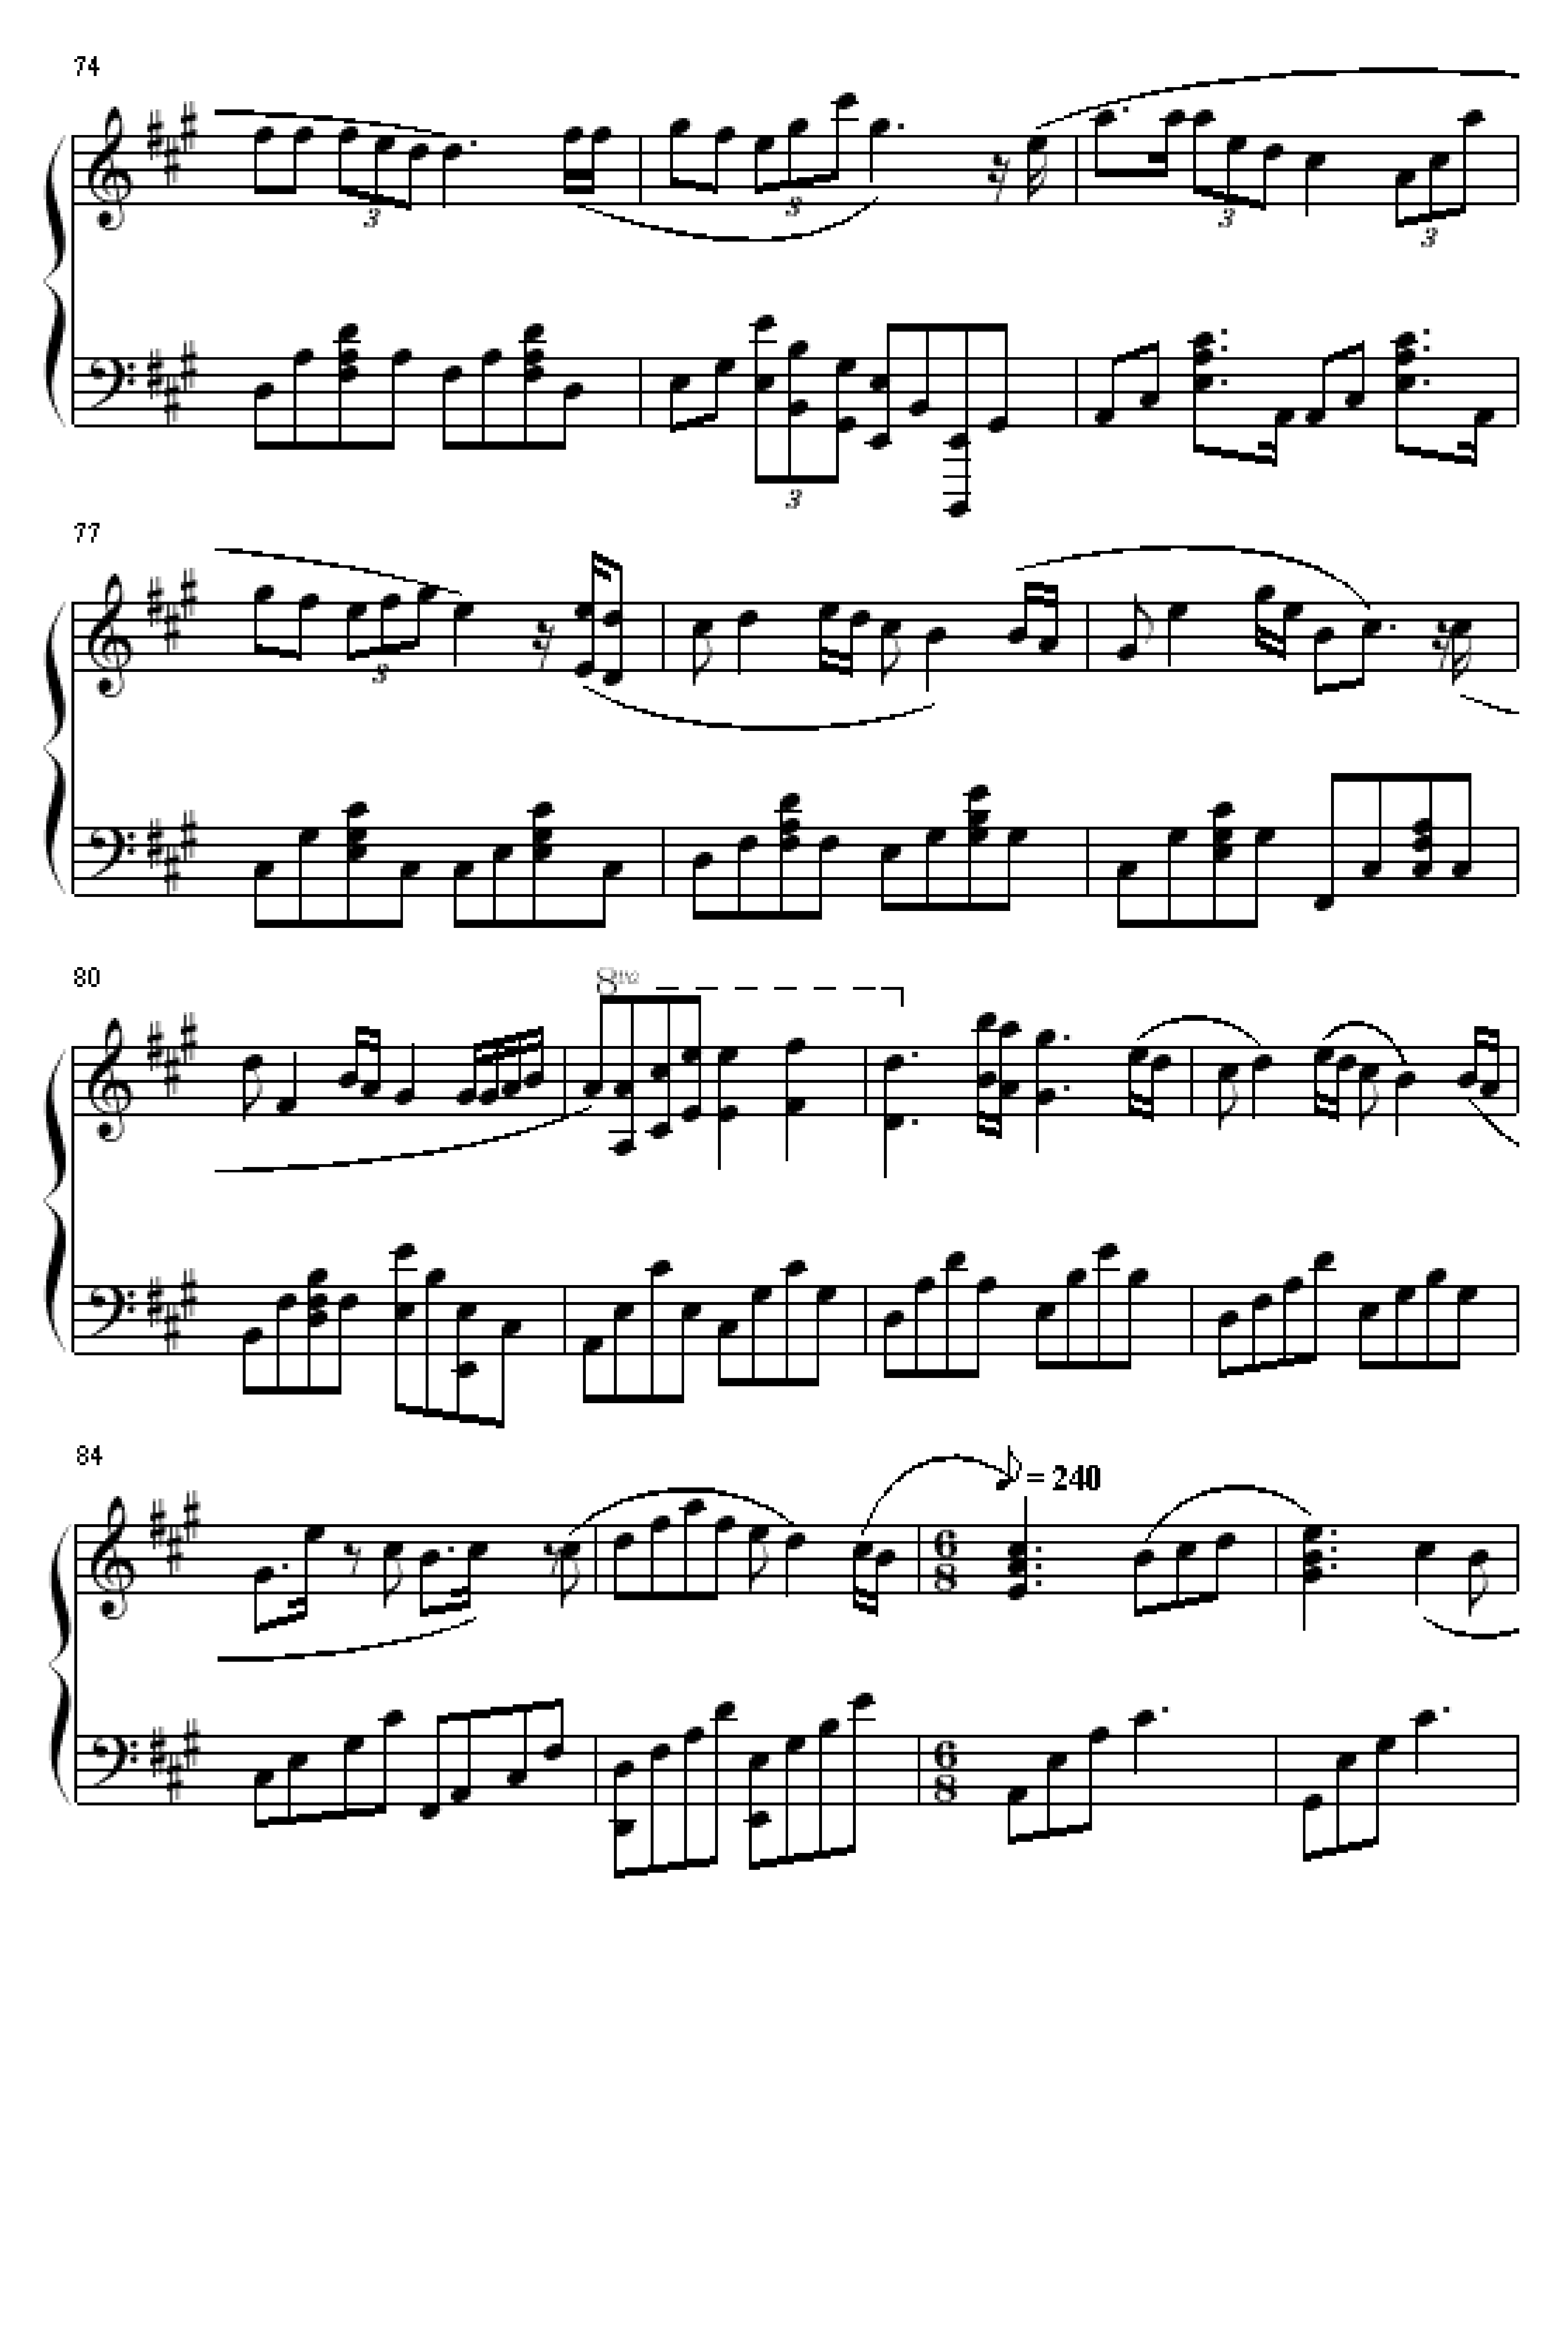 74
3
3
3
3
3
77
3
80
8va
84
= 240
6
8
6
8